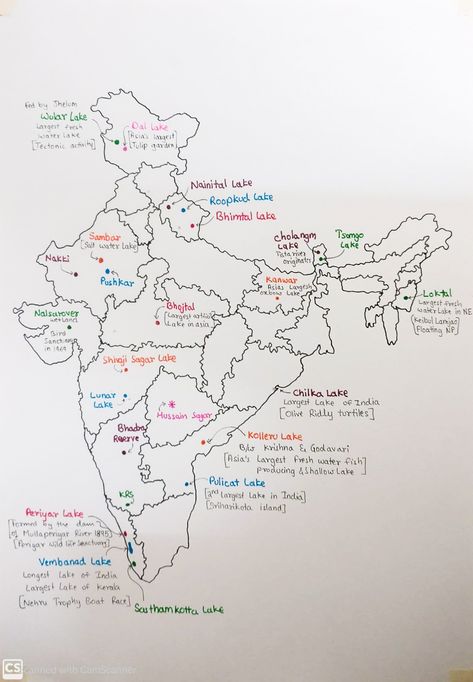 fed by Jhelum
Wular Lake
Largest fresh
water lake
[Tectonic activity]
Dal Lake
[Asia's largest
Tulip garden]
Nainital Lake
Roopkud Lake
Bhimtal Lake
Cholamm
Lake
Tista river
originates
Tsomgo
Lake
Sambar
[Salt water Lake]
Nakki
Pushkar
Kanwar
Asia's Largest
oxbow Lake
Loktal
Largest fresh
water Lake in NE
(Keibul Lamjao)
Floating NP
Nalsarover
wetland
Bird
Sanctuary
in 1969
Bhojtal
[Largest artifi
Lake in asia
Shivaji Sagar Lake
Lunar
Lake
Hussain Sagar
Chilka Lake
Largest Lake of India
[Olive Ridly turtles]
Bhadra
Reserve
Kolleru Lake
B/w Krishna & Godavari
[Asia's Largest fresh water fish]
producing & Shallow Lake
Pulicat Lake
[2nd Largest Lake in India]
[Sriharikota island]
KRS
Periyar Lake
[formed by the dam
of Mullaperiyar River 1895]
[Periyar wild life Sanctuary]
Vembanad Lake
Longest Lake of India
Largest Lake of Kerala
[Nehru Trophy Boat Race]
Sasthamkotta Lake
CS
Scanned with CamScanner